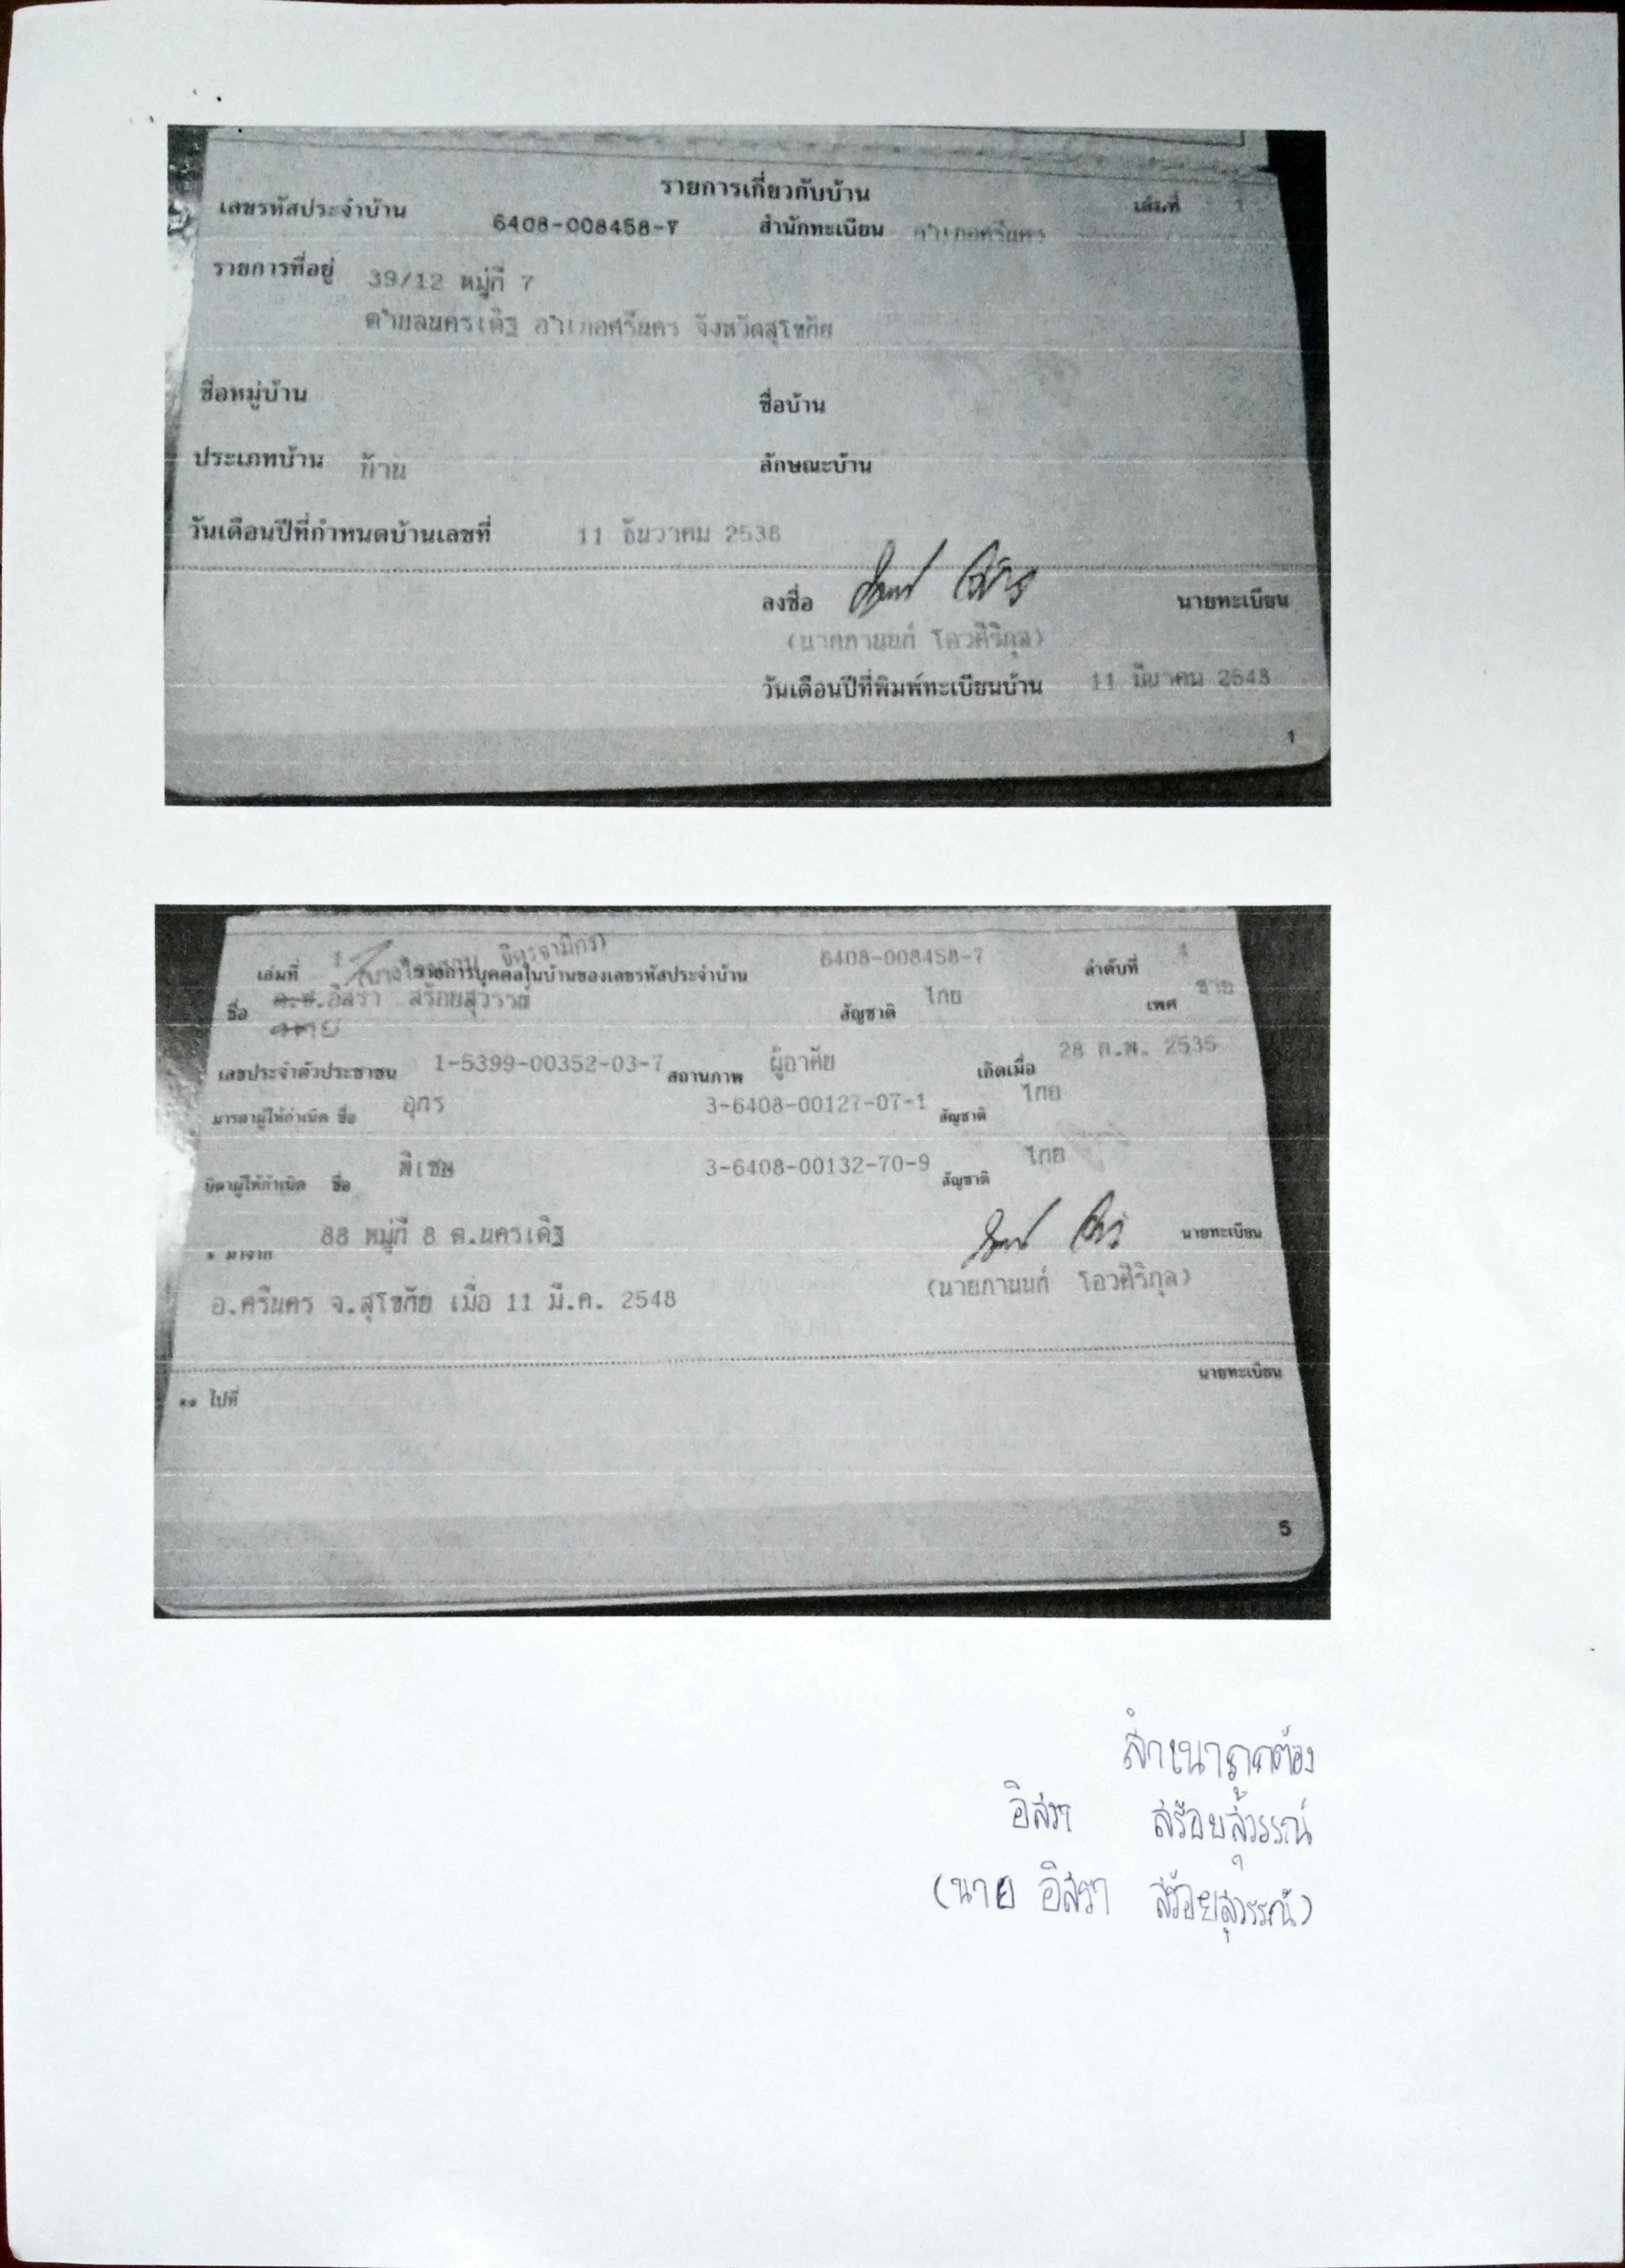 รายการเกี่ยวกับบ้าน
เล่มที่ 1
เลขรหัสประจำบ้าน 6408-008458-7 สำนักทะเบียน อำเภอศรีนคร
รายการที่อยู่ 39/12 หมู่ที่ 7
ตำบลนครเดิฐ อำเภอศรีนคร จังหวัดสุโขทัย
ชื่อหมู่บ้าน ชื่อบ้าน
ประเภทบ้าน บ้าน ลักษณะบ้าน
วันเดือนปีที่กำหนดบ้านเลขที่ 11 ธันวาคม 2538
ลงชื่อ นายทะเบียน
(นายภานนท์ โอวศิริกุล)
วันเดือนปีที่พิมพ์ทะเบียนบ้าน 11 มีนาคม 2548
1
เล่มที่ 1 รายการบุคคลในบ้านของเลขรหัสประจำบ้าน 6408-008458-7 ลำดับที่ 4
ชื่อ ด.ช.อิสรา สร้อยสุวรรณ์ สัญชาติ ไทย เพศ ชาย
นาย
เลขประจำตัวประชาชน 1-5399-00352-03-7 สถานภาพ ผู้อาศัย เกิดเมื่อ 28 ก.พ. 2535
มารดาผู้ให้กำเนิด ชื่อ อุทร 3-6408-00127-07-1 สัญชาติ ไทย
บิดาผู้ให้กำเนิด ชื่อ พิเชษ 3-6408-00132-70-9 สัญชาติ ไทย
* มาจาก 88 หมู่ที่ 8 ต.นครเดิฐ นายทะเบียน
อ.ศรีนคร จ.สุโขทัย เมื่อ 11 มี.ค. 2548 (นายภานนท์ โอวศิริกุล)
** ไปที่ นายทะเบียน
5
สำเนาถูกต้อง
อิสรา สร้อยสุวรรณ์
(นาย อิสรา สร้อยสุวรรณ์)